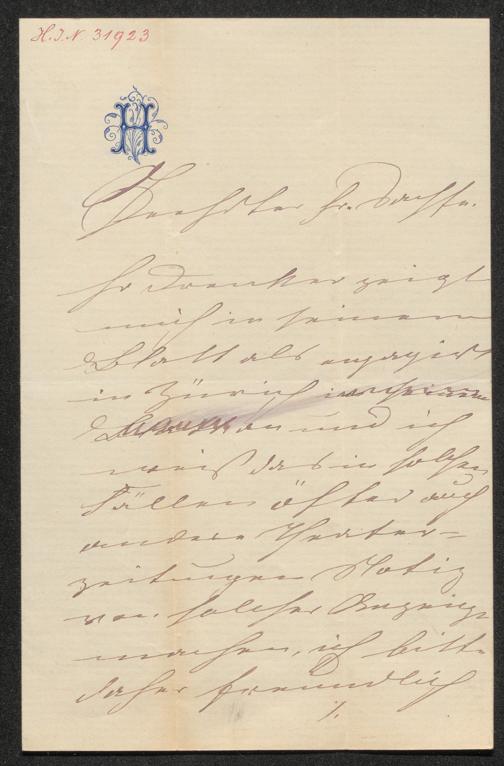 H.I.N. 31923
H
Fr. Sachse.
zeigt
mich in seinem
Blatt als engagirt
in Zürich
an und ich
weiß das in solchen
Fällen öfter auch
andere Theater-
zeitungen Notiz
von solcher Anzeige
machen, ich bitte
daher freundlich
/.